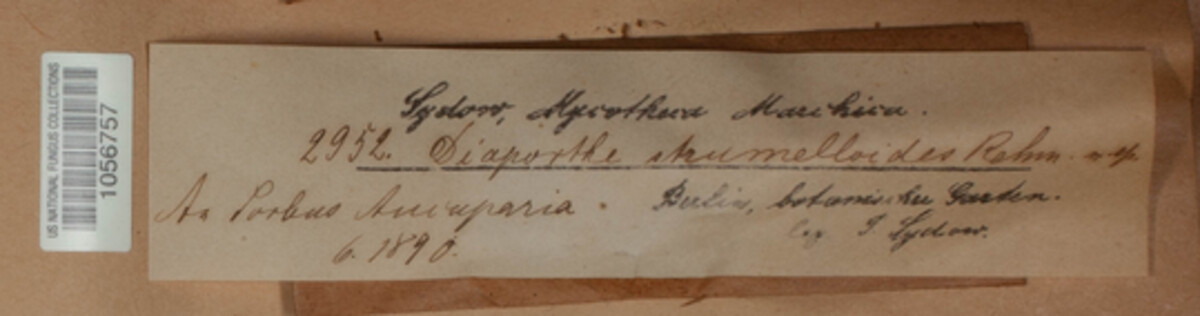 US NATIONAL FUNGUS COLLECTIONS
1056757
Sydow, Mycotheca Marchica.
2952. Diaporthe strumelloides Rehm. n. sp.
An Sorbus Aucuparia. Berlin, botanischer Garten.
6. 1890. leg. P. Sydow.